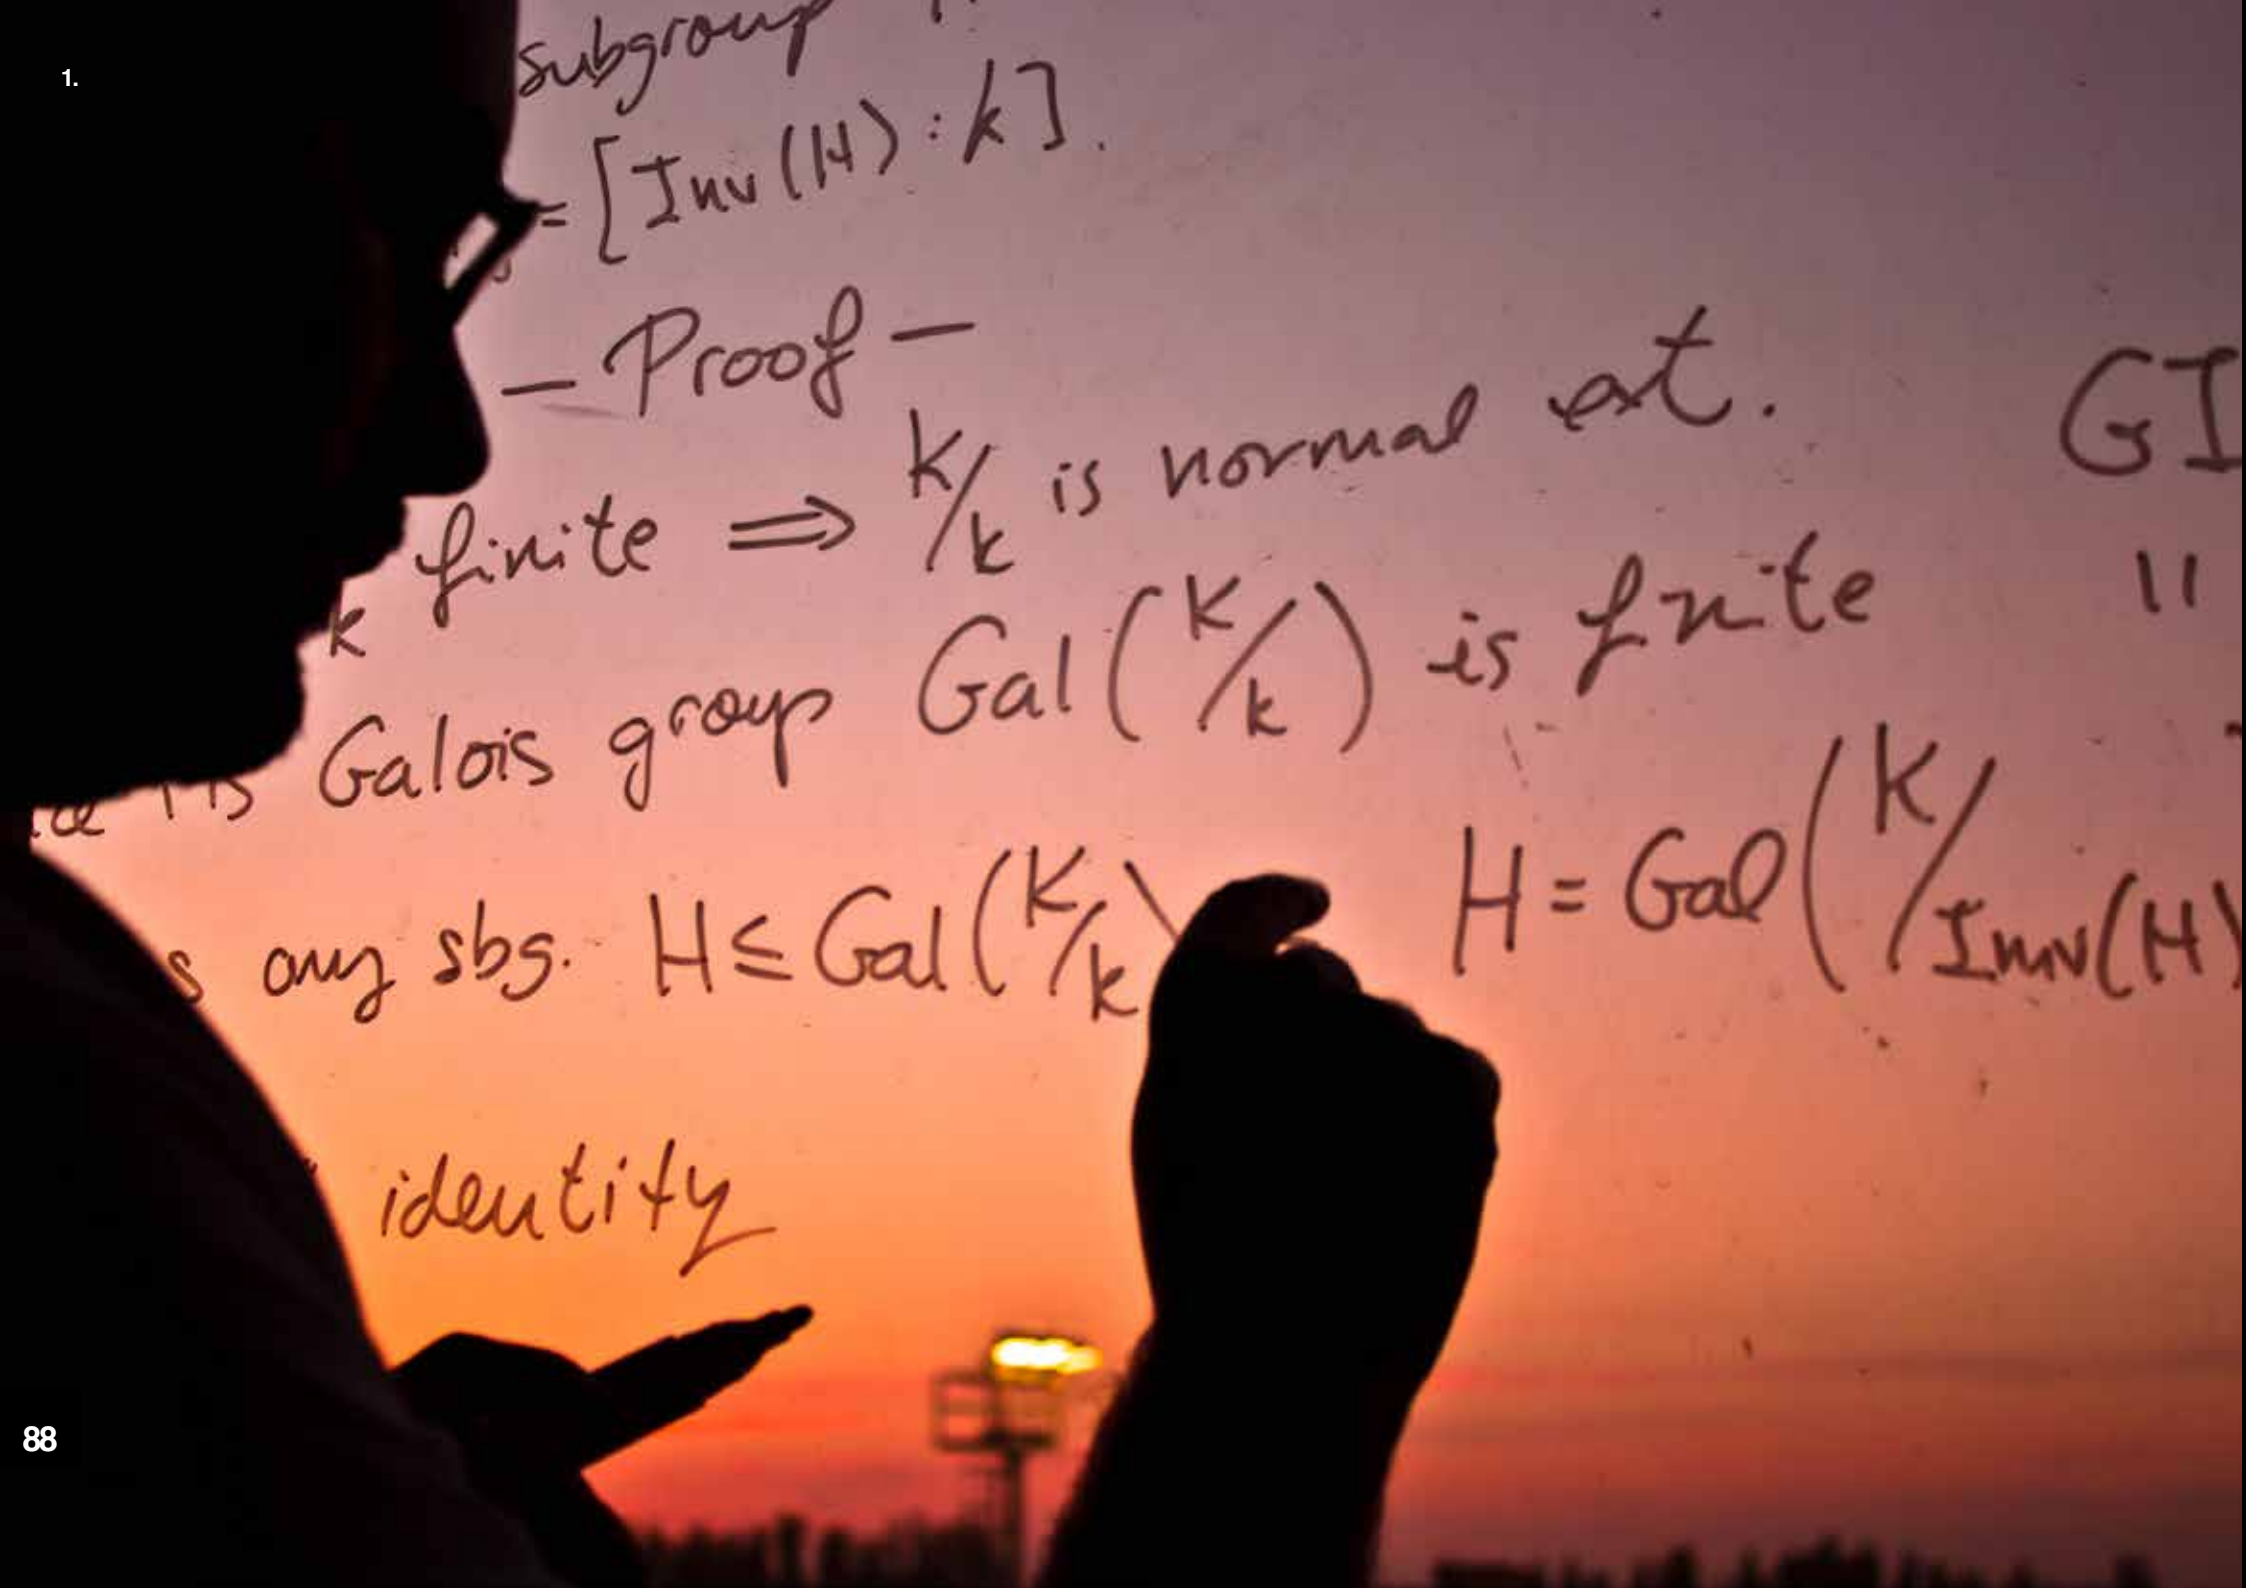 1.
subgroup
= [Inv(H) : k].
— Proof —
finite ⟹ K/k is normal ext.
GI
k
Galois group Gal(K/k) is finite
"
any sbg. H ≤ Gal(K/k) H = Gal(K/Inv(H)
identity
88